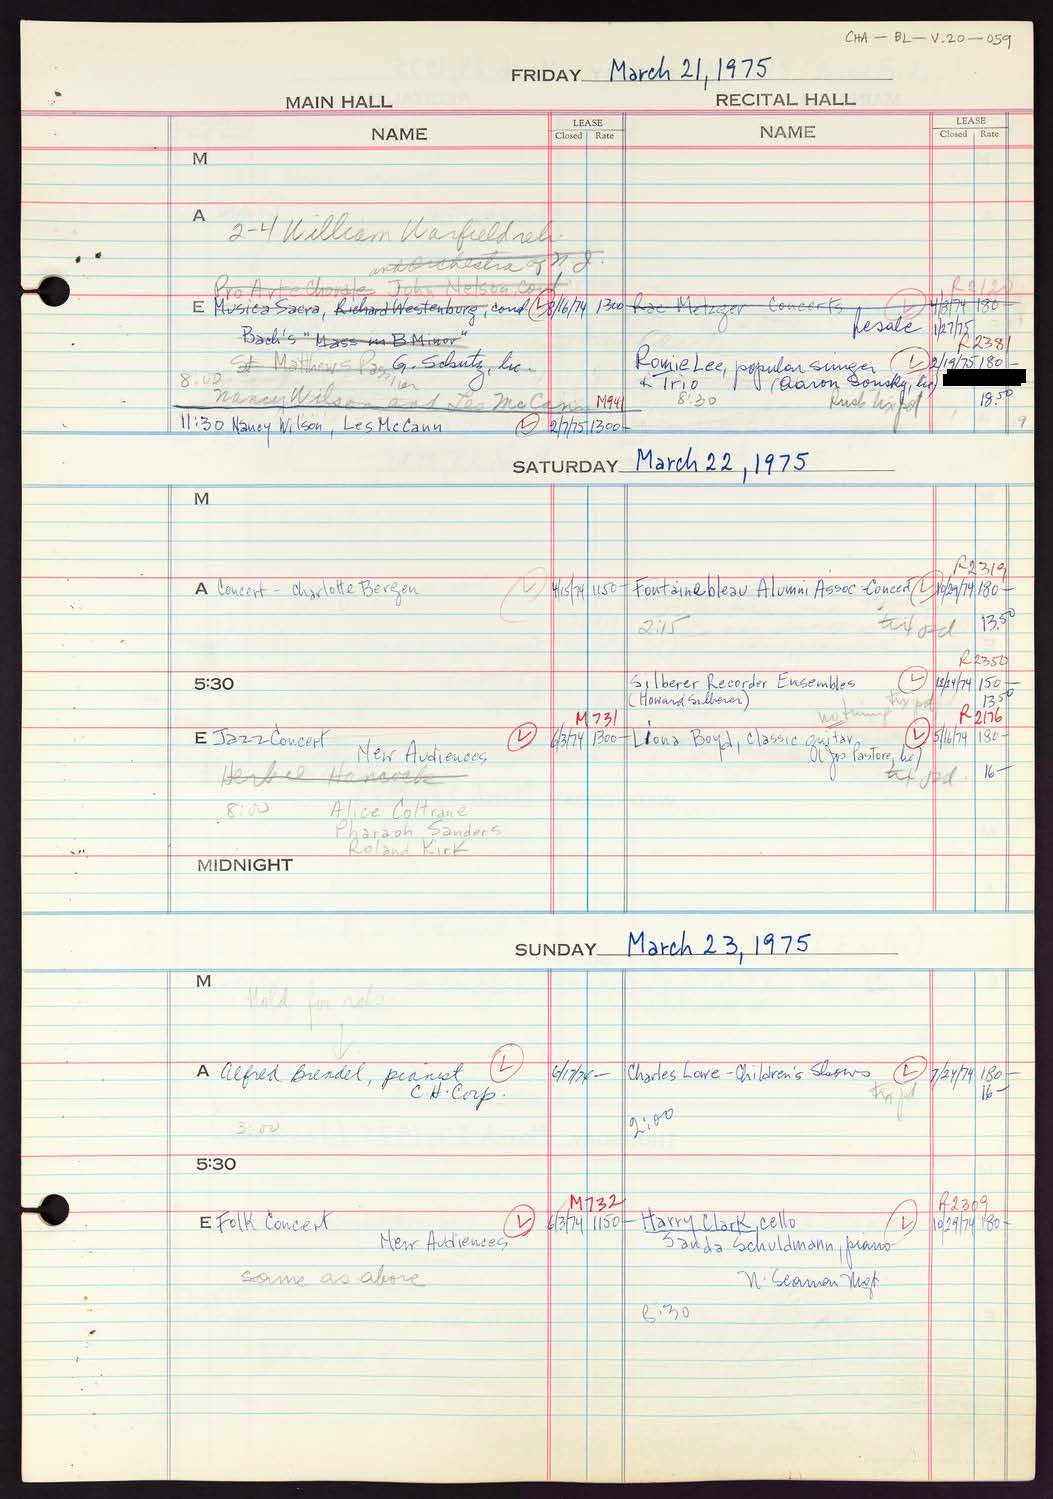 CHA - BL - V.20 - 059
FRIDAY March 21, 1975
MAIN HALL RECITAL HALL
NAME LEASE Closed Rate NAME LEASE Closed Rate
M
A
2-4 William Warfield reh.
and Orchestra of N.J.
Pro Arte Chorale John Nelson, cond R2120
E Musica Sacra, Richard Westenburg, cond. L 8/16/74 1300 Rae Metzger Concerts L 4/8/74 180-
resale 1/27/75
Bach's "Mass in B Minor" R2381
St Matthews Passion G. Schutz, Inc. Romie Lee, popular singer L 2/19/75 180-
8:00 & Trio (Aaron Sonsky, Inc)
Nancy Wilson and Les McCann M941 8:30 Rush tix pd 18.50
11:30 Nancy Wilson, Les McCann L 2/7/75 1300- 9
SATURDAY March 22, 1975
M
R2319
A Concert - Charlotte Bergen L 4/15/74 1150- Fontainebleau Alumni Assoc - Concert L 10/29/74 180-
2:15 tix pd 13.50
R2350
5:30 Silberer Recorder Ensembles L 12/24/74 150-
(Howard Silberer) tix pd 13.50
M731 R2176
E Jazz Concert L 6/3/74 1300- Liona Boyd, classic guitar L 5/16/74 180-
New Audiences
Herbie Hancock tix pd. 16-
8:00 Alice Coltrane
Pharaoh Sanders
Roland Kirk
MIDNIGHT
SUNDAY March 23, 1975
M
Hold for reh
A Alfred Brendel, pianist L 6/17/74- Charles Lowe - Children's Shows L 7/24/74 180-
C.H. Corp. tix pd 16-
3:00 2:00
5:30
M732 R2309
E Folk Concert L 6/3/74 1150- Harry Clark, cello L 10/29/74 180-
New Audiences Sanda Schuldmann, piano
same as above N. Seaman Mgt
8:30